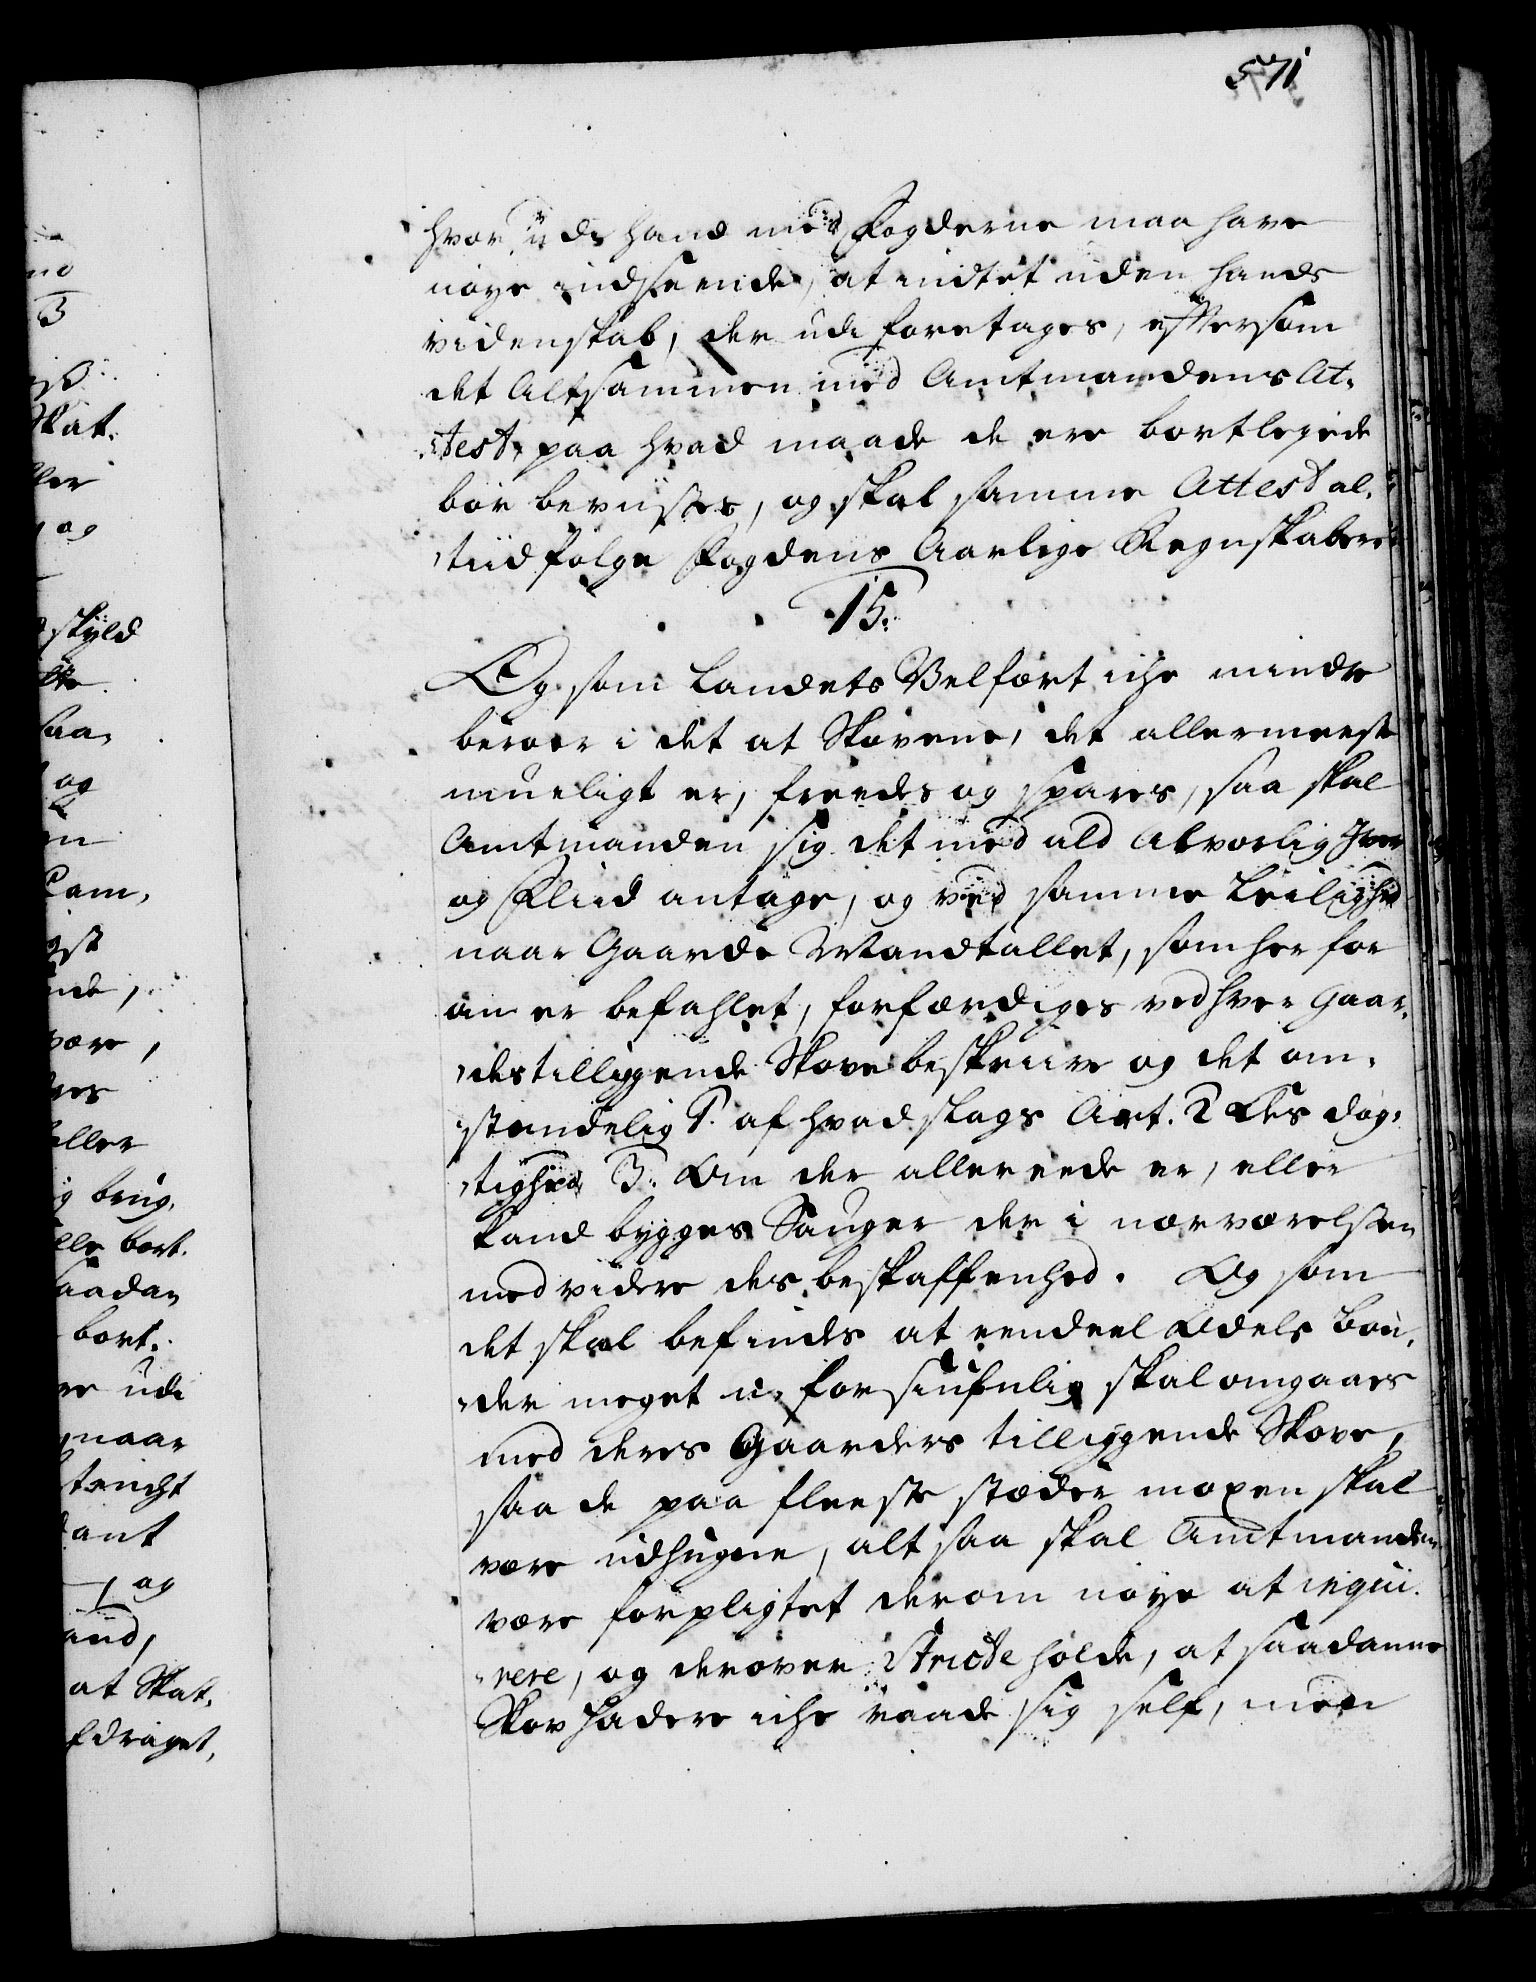 571
hvor udi hand med Fogderne maa have
nøye indseende, at indtet uden hands
videnskab, der udi foretages, efftersom
det Altsammen med Amtmandens At-
test, paa hvad maade de ere bortlegede
bør bevises, og skal samme Attest al-
tiid følge Fogdens Aarlige Regnskaber
15.
Og som Landets Velfært iche mindre
beroer i det at Skovene, det allermeeste
mueligt er, freedes og spares, saa skal
Amtmanden sig det med ald Alvorlig Iver
og Fliid antage, og ved samme Leilighed
naar Gaarde Mandtallet, som her for
an er befahlet, forfærdiges ved hver Gaar-
des tilliggende Skove beskriive og det om-
stendelig 1. af hvad slags Art. 2 Des døg-
tighed 3. Om der allereede er, eller
kand bygges Sauger der i nærværelsen
med videre des beskaffenhed. Og som
det skal befindes at eendeel Odels Bøn-
der meget u-forsiufnlig skal omgaaes
med deres Gaarders tilliggende Skove,
saa de paa fleeste stæder moxen skal
være udhugne, alt saa skal Amtmanden
være forpligtet derom nøye at inqvi-
rere, og derover stricte holde, at saadanne
Skov hadere iche raade sig self, men
nd
3
skat.
ller
og
skyld
saa,
og
en
Cam,
ende,
være,
res
eller
g brug,
lle bort.
saadan
bort.
re udi
naar
ant
og
at Skat,
fdraget,